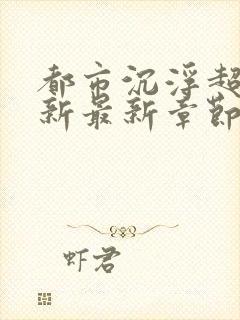 都市沉浮超
新最新章節
虾君